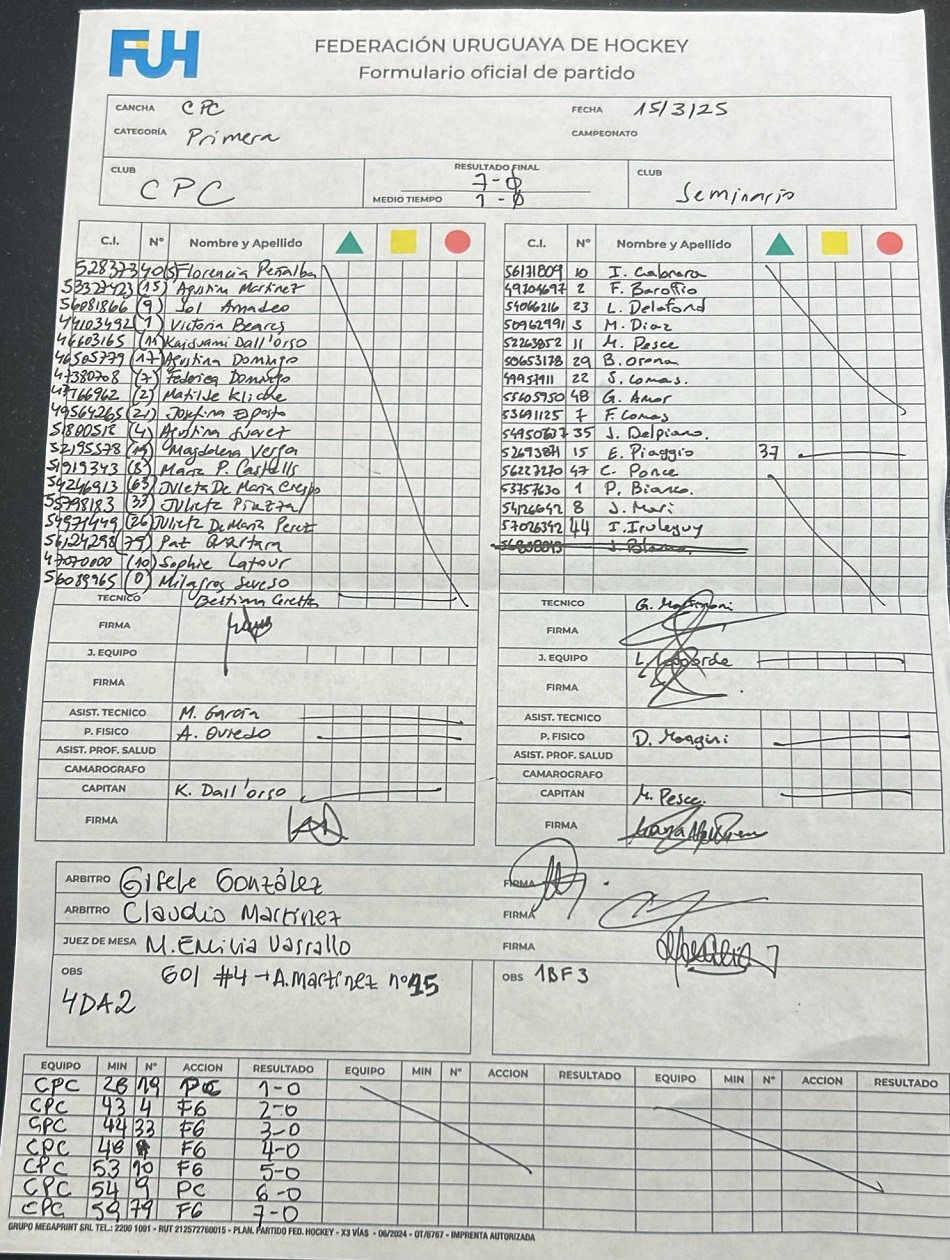 FUH
FEDERACIÓN URUGUAYA DE HOCKEY
Formulario oficial de partido
CANCHA CPC FECHA 15/3/25
CATEGORÍA Primera CAMPEONATO
CLUB CPC RESULTADO FINAL 7-0 CLUB Seminario
MEDIO TIEMPO 1-0
C.I. Nº Nombre y Apellido
52837340 (5) Florencia Peñalba
53327423 (15) Agustina Martinez
56081866 (9) Sol Amadeo
49103492 (1) Victoria Beares
46603165 (11) Kaisuami Dall'orso
46505779 (17) Agustina Domingo
47380708 (7) Federica Domingo
47766962 (2) Matilde Kliche
49564265 (21) Josefina Esposto
51800512 (4) Agustina Suarez
52195578 (19) Magdalena Verga
51919343 (8) Maria P. Castells
54246913 (63) Julieta De Maria Crespo
55798183 (33) Julieta Piazzal
54971449 (26) Julieta De Maria Perez
56124298 (79) Pat Quartara
47070000 (10) Sophie Latour
56089965 (0) Milagros Seveso
TECNICO Bettina Ceretta
FIRMA
J. EQUIPO
FIRMA
ASIST. TECNICO M. García
P. FISICO A. Oviedo
ASIST. PROF. SALUD
CAMAROGRAFO
CAPITAN K. Dall'orso
FIRMA
C.I. Nº Nombre y Apellido
56171809 10 I. Cabrera
49704697 2 F. Baroffio
54066216 23 L. Delafond
50962991 3 M. Diaz
52263852 11 M. Pesce
50653178 29 B. Orona
49957911 22 S. Comas.
55605950 48 G. Amor
53691125 7 F. Comas
54950637 35 J. Delpiano.
52693871 15 E. Piaggio 37
56227270 47 C. Ponce
53757630 1 P. Bianco.
54126642 8 J. Mari
57026342 44 I. Iruleguy
TECNICO G.
FIRMA
J. EQUIPO L.
FIRMA
ASIST. TECNICO
P. FISICO D. Maggini
ASIST. PROF. SALUD
CAMAROGRAFO
CAPITAN M. Pesce.
FIRMA
ARBITRO Gisele González FIRMA
ARBITRO Claudio Martinez FIRMA
JUEZ DE MESA M. Emilia Vassallo FIRMA
OBS GOl #4 → A. Martinez nº 15
4DA2
OBS 1BF3
EQUIPO MIN Nº ACCION RESULTADO EQUIPO MIN Nº ACCION RESULTADO EQUIPO MIN Nº ACCION RESULTADO
CPC 28 19 PC 1-0
CPC 43 4 FG 2-0
CPC 44 33 FG 3-0
CPC 48 FG 4-0
CPC 53 10 FG 5-0
CPC 54 9 PC 6-0
CPC 59 79 FG 7-0
GRUPO MEGAPRINT SRL TEL.: 2200 1091 - RUT 212572760015 - PLAN. PARTIDO FED. HOCKEY - X3 VÍAS - 06/2024 - OT/6767 - IMPRENTA AUTORIZADA